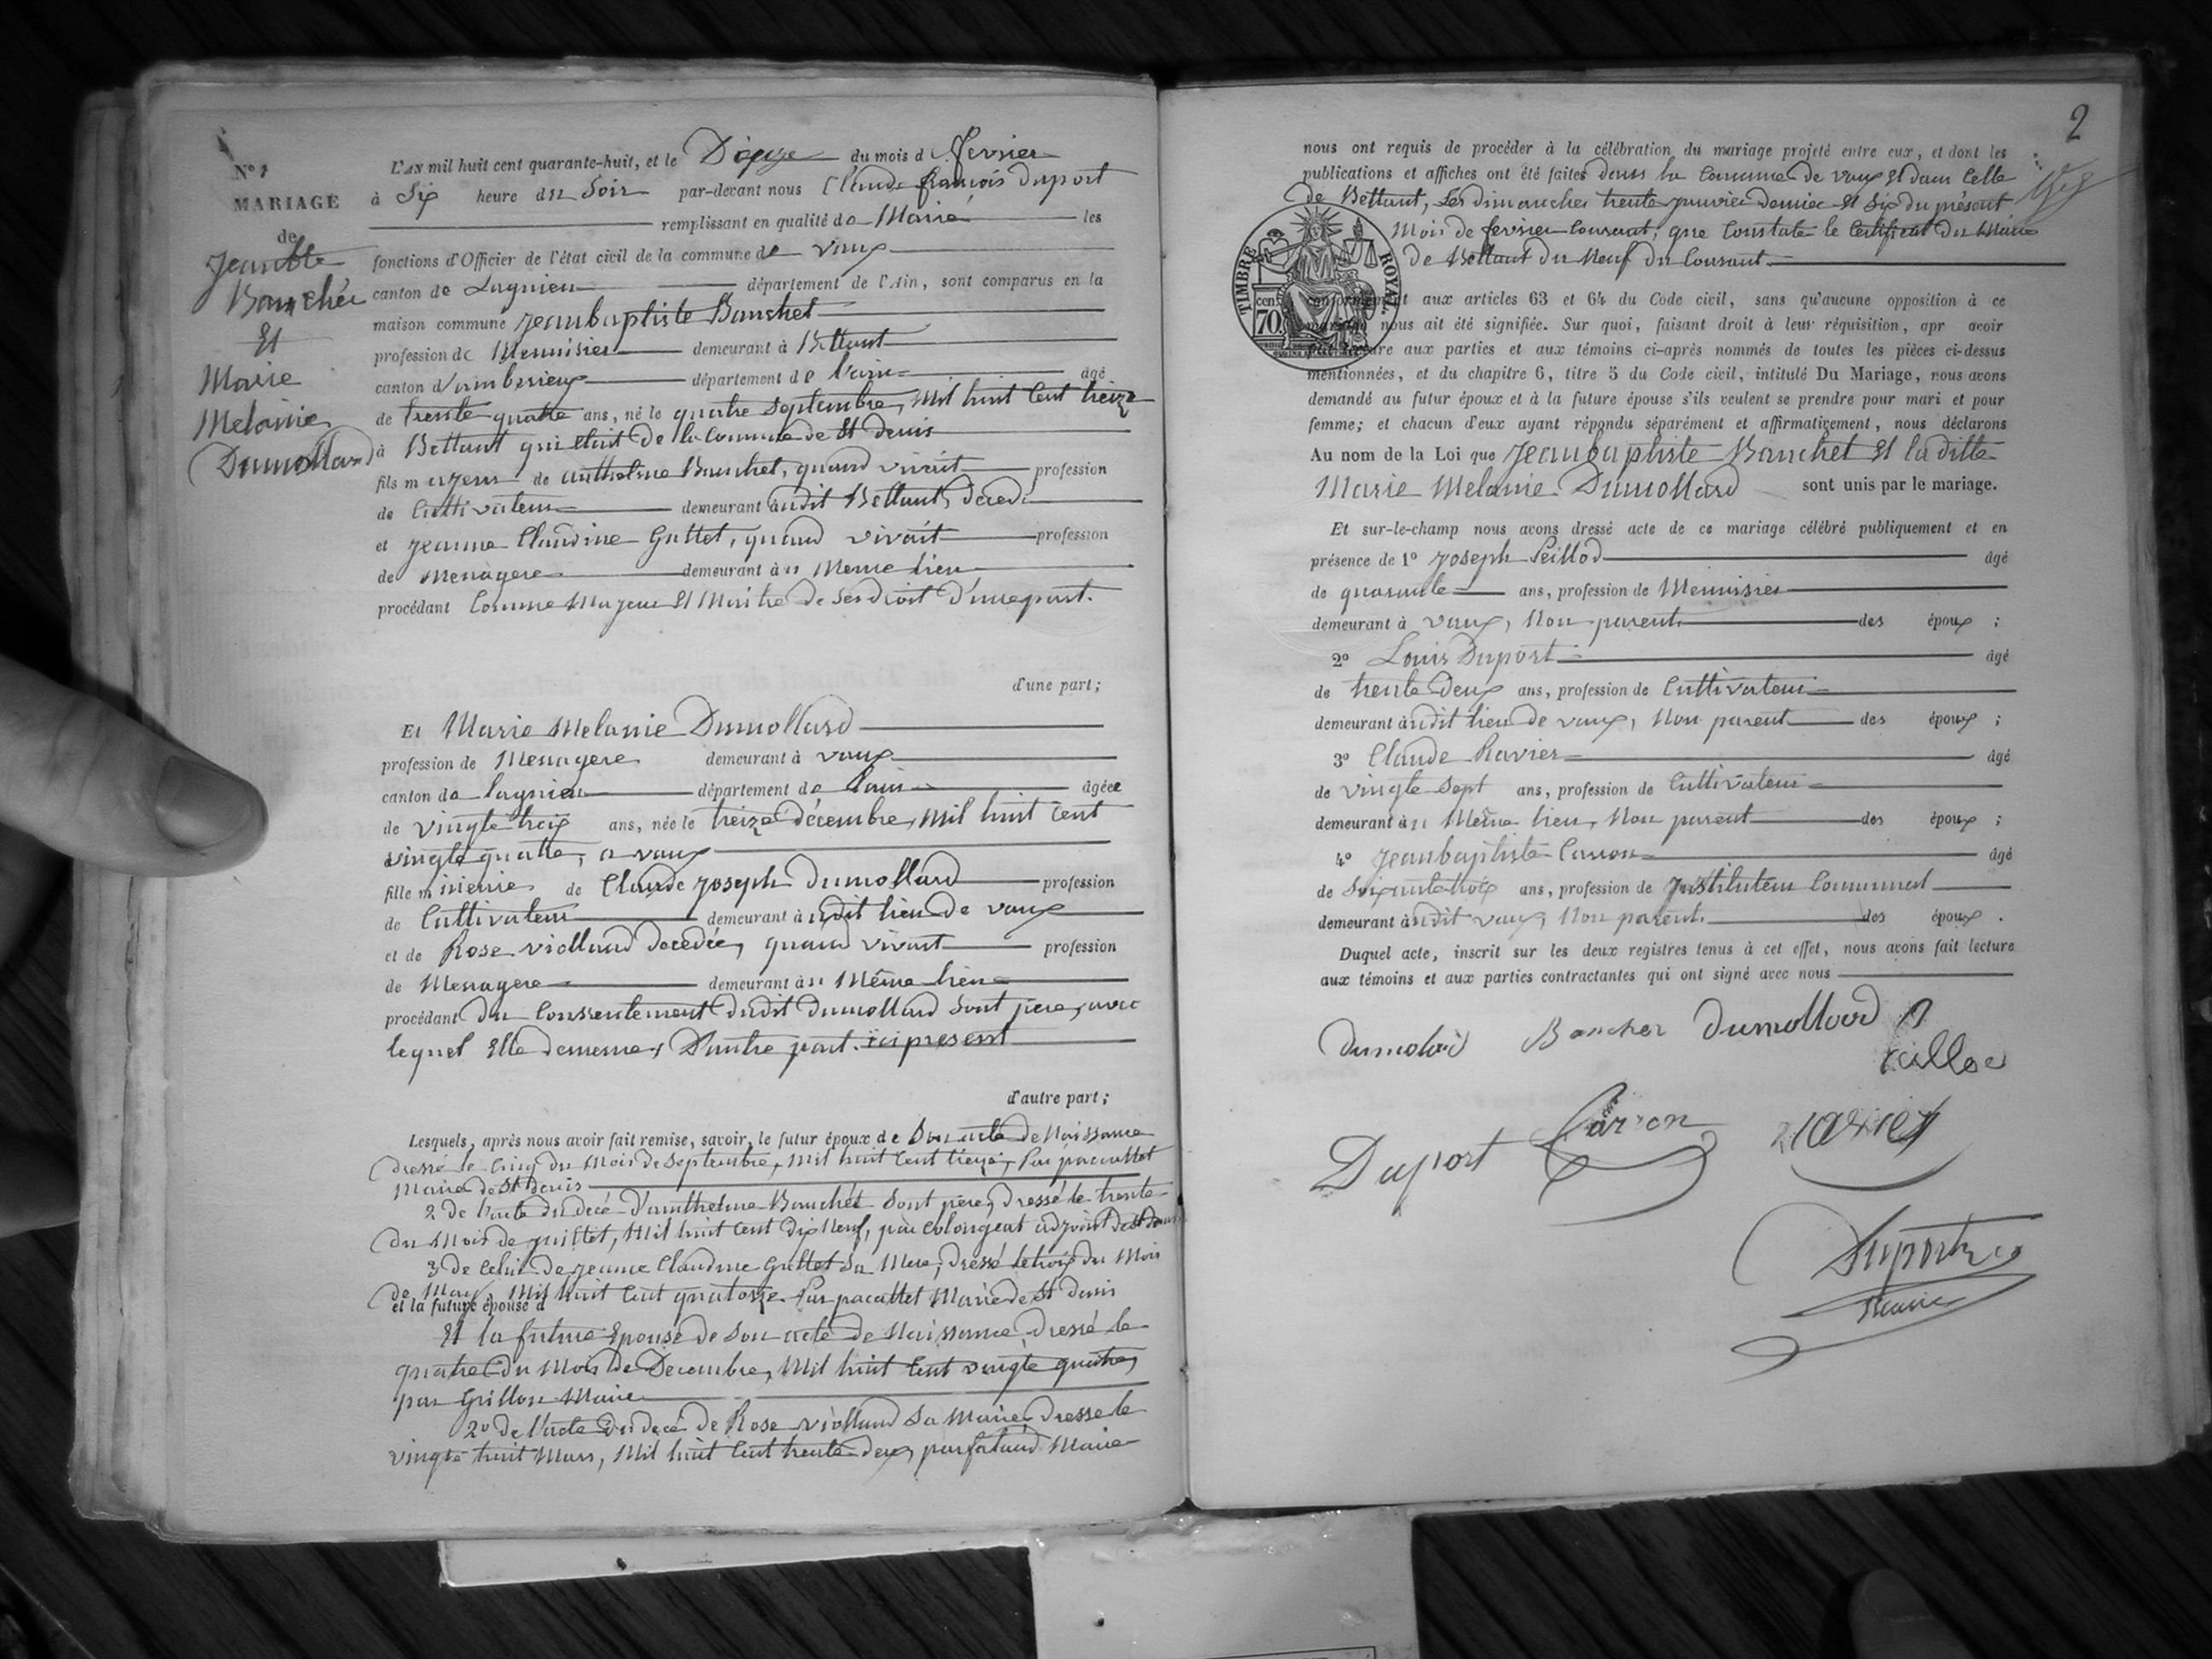 N° 1
MARIAGE
de
Jean Bte
Banchet
Et
Marie
Melanie
Dumollard
L'AN mil huit cent quarante-huit, et le Dixze du mois d fevrier
à Six heure du Soir par-devant nous Claude françois duport
remplissant en qualité de Maire les
fonctions d'Officier de l'état civil de la commune de vaux
canton de Lagnieu département de l'Ain, sont comparus en la
maison commune Jeanbaptiste Banchet
profession de Menuisier demeurant à Bettant
canton d'amberieux département de l'ain âgé
de trente quatre ans, né le quatre Septembre, Mil huit Cent treize
à Bettant qui étoit de la Commune de St denis
fils majeur de anthelme Banchet, quand vivait profession
de Cultivateur demeurant audit Bettant, décédé
et jeanne Claudine Guttet, quand vivait profession
de Menagere demeurant au Meme lieu
procédant Comme Majeur Et Maitre de Ses droit d'une part.
d'une part;
Et Marie Melanie Dumollard
profession de Menagere demeurant à vaux
canton de lagnieu département de l'ain âgée
de vingte trois ans, née le treize décembre, Mil huit Cent
vingte quatre, a vaux
fille mineure de Claude Joseph dumollard profession
de Cultivateur demeurant audit lieu de vaux
et de Rose viollaud décedée, quand vivait profession
de Menagere demeurant au Même lieu
procédant du Conssentement dudit dumollard Sont père, avec
lequel Elle demeure, D'autre part. ici present
d'autre part;
Lesquels, après nous avoir fait remise, savoir, le futur époux de Son acte de Naissance
dressé le Cinq du Mois de Septembre, Mil huit Cent treize, Par pacallet
Maire de St denis
2 de l'acte du decé D'anthelme Banchet Sont père, dressé le trente
du Mois de juillet, Mil huit Cent dix Neuf, par Colongeat adjoint de St denis
3 de Celui de jeanne Claudine Guttet Sa Mere, dressé le trois du Mois
de May, Mil huit Cent quatorze Par pacallet Maire de St denis
et la future épouse d
Et la future Epouse de Son acte de Naissance dressé le
quatre du Mois de Decembre, Mil huit Cent vingte quatre,
par Grillon Maire
2° de l'acte du decé de Rose viollaud Sa Maire dresse le
vingte huit Mars, Mil huit Cent trente deux, par Maire
2
nous ont requis de procéder à la célébration du mariage projeté entre eux, et dont les
publications et affiches ont été faites dans la Commune de vaux Et dans Celle
de Bettant, Les dimanches trente janvier dernier Et Six du présent
Mois de fevrier Courant; que Constate le Certificat du Maire
de Bettant du Neuf du Courant
TIMBRE ROYAL
cen. 70
conformément aux articles 63 et 64 du Code civil, sans qu'aucune opposition à ce
mariage nous ait été signifiée. Sur quoi, faisant droit à leur réquisition, apr avoir
aux parties et aux témoins ci-après nommés de toutes les pièces ci-dessus
mentionnées, et du chapitre 6, titre 5 du Code civil, intitulé Du Mariage, nous avons
demandé au futur époux et à la future épouse s'ils veulent se prendre pour mari et pour
femme; et chacun d'eux ayant répondu séparément et affirmativement, nous déclarons
Au nom de la Loi que Jeanbaptiste Banchet Et la ditte
Marie Melanie Dumollard sont unis par le mariage.
Et sur-le-champ nous avons dressé acte de ce mariage célébré publiquement et en
présence de 1° Joseph Peillod âgé
de quarante ans, profession de Menuisier
demeurant à vaux, Non parent des époux ;
2° Louis Duport âgé
de trente deux ans, profession de Cultivateur
demeurant audit lieu de vaux, Non parent des époux ;
3° Claude Ravier âgé
de vingte Sept ans, profession de Cultivateur
demeurant au Même lieu, Non parent des époux ;
4° Jeanbaptiste Carron âgé
de Soixante trois ans, profession de Jnstituteur Communal
demeurant audit vaux, Non parent. des époux .
Duquel acte, inscrit sur les deux registres tenus à cet effet, nous avons fait lecture
aux témoins et aux parties contractantes qui ont signé avec nous
Bancher Dumollard
Peillod
Duport Carron Ravier
Duport
Maire